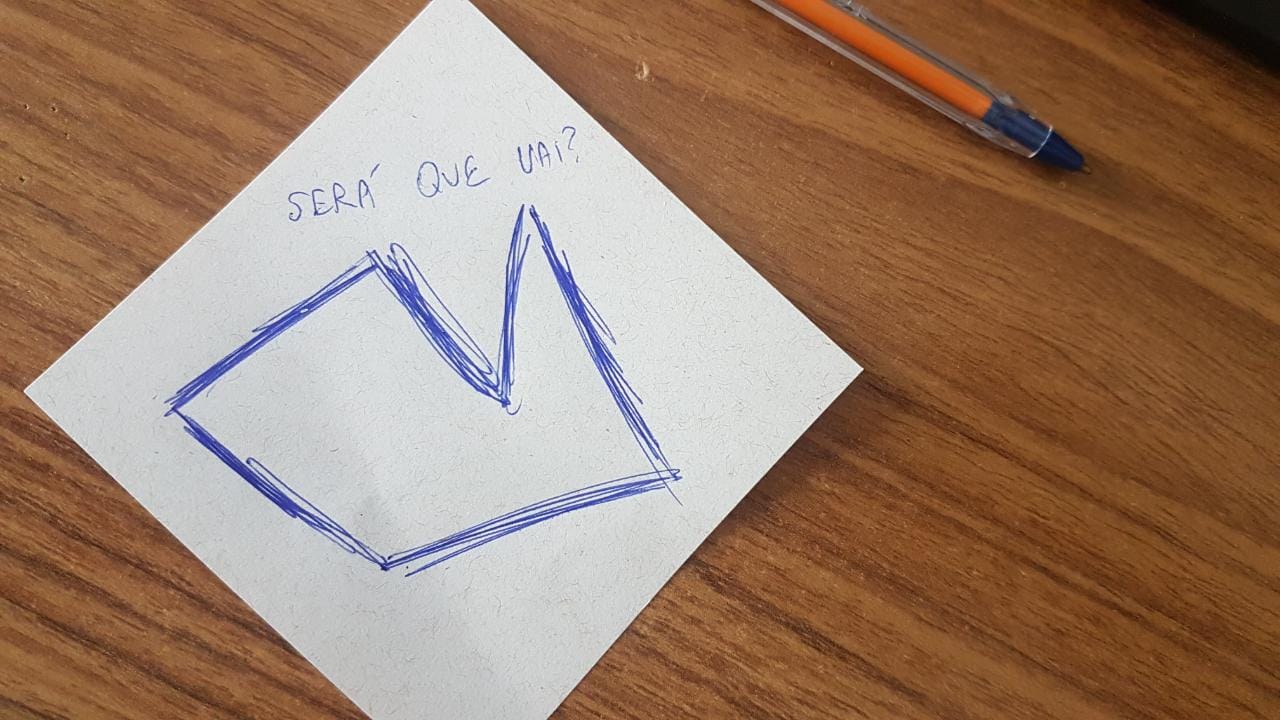 SERÁ QUE VAI?